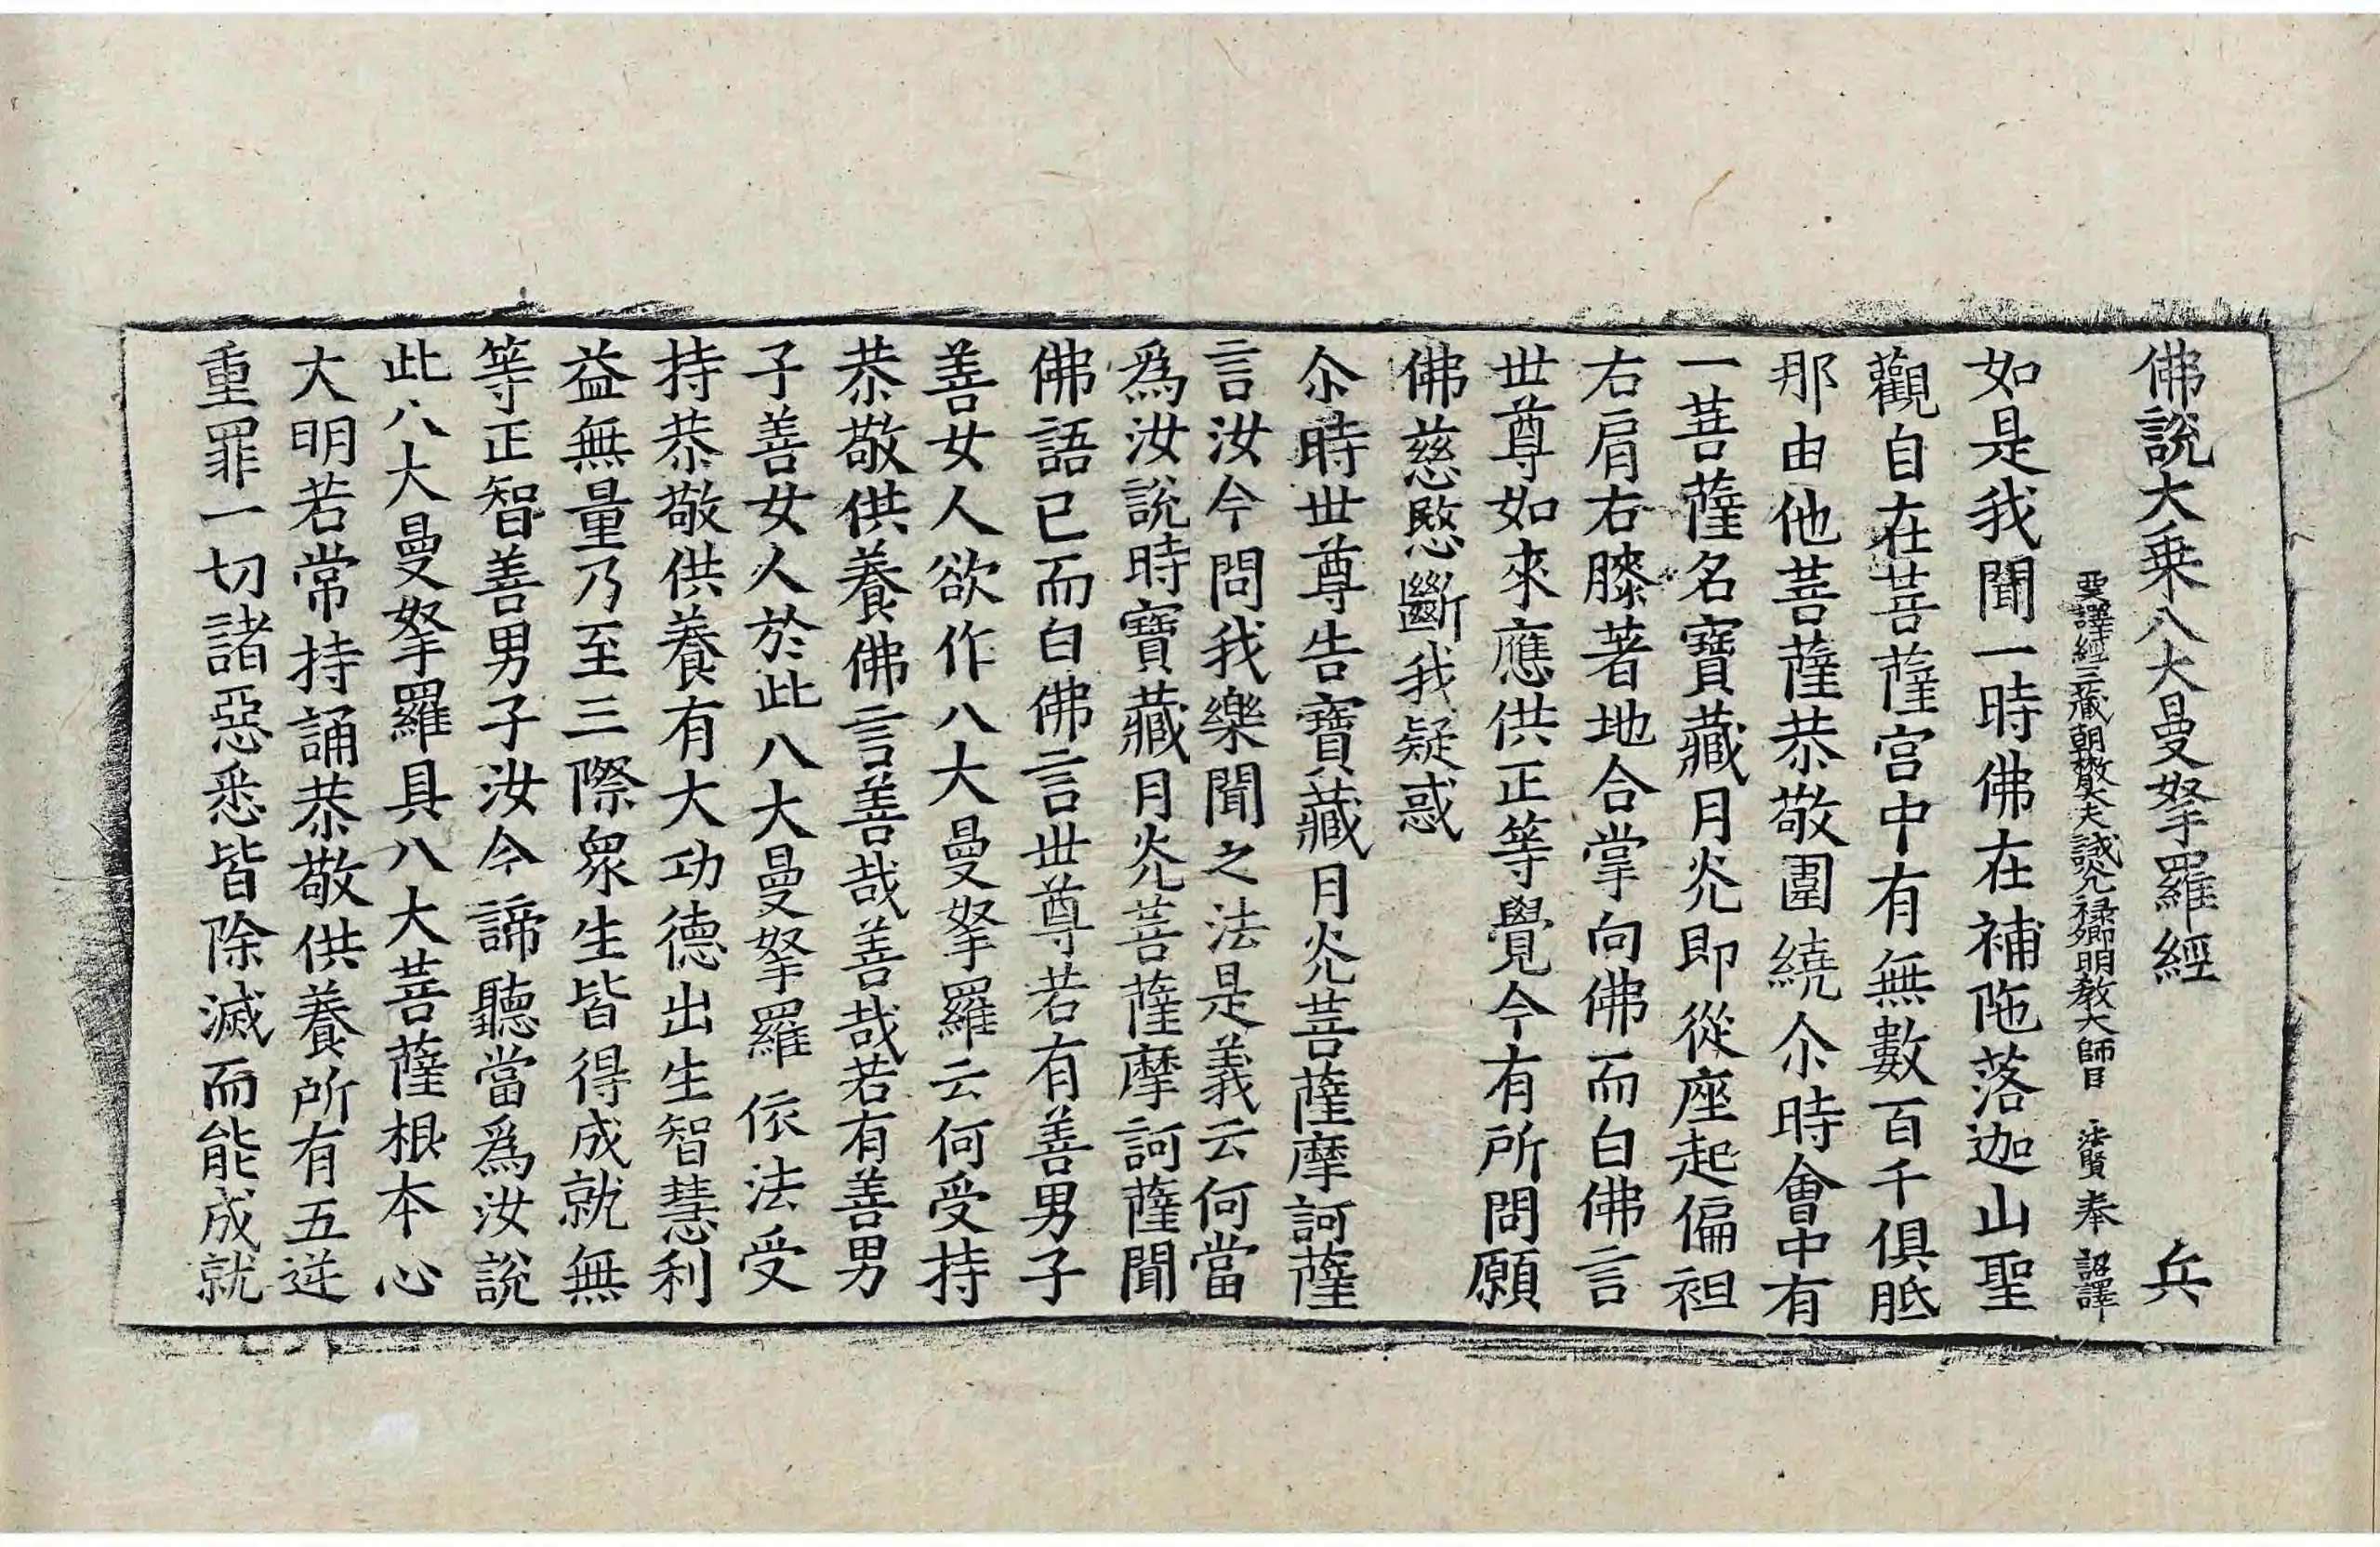 佛說大乗八大曼拏羅經　兵
西天譯經三藏朝散大夫試光禄卿明教大師臣　法賢奉　詔譯
如是我聞一時佛在補陁落迦山聖
觀自在菩薩宮中有無數百千俱胝
那由他菩薩恭敬圍繞尒時會中有
一菩薩名寶藏月光即從座起偏袒
右肩右膝著地合掌向佛而白佛言
世尊如來應供正等覺今有所問願
佛慈愍斷我疑惑
尒時世尊告寶藏月光菩薩摩訶薩
言汝今問我樂聞之法是義云何當
爲汝說時寶藏月光菩薩摩訶薩聞
佛語已而白佛言世尊若有善男子
善女人欲作八大曼拏羅云何受持
恭敬供養佛言善哉善哉若有善男
子善女人於此八大曼拏羅依法受
持恭敬供養有大功德出生智慧利
益無量乃至三際衆生皆得成就無
等正智善男子汝今諦聽當爲汝說
此八大曼拏羅具八大菩薩根本心
大明若常持誦恭敬供養所有五逆
重罪一切諸惡悉皆除滅而能成就